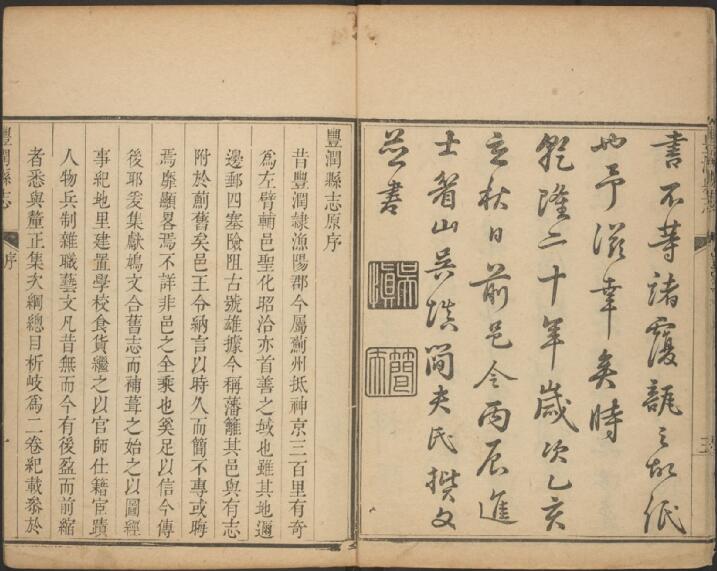 書不等諸覆瓿之故紙
也予滋幸矣時
乾隆二十年歲次乙亥
立秋日前邑令丙辰進
士箬山吳慎簡夫氏撰文
並書
吳慎
簡夫
豐潤縣志原序
昔豐潤隸漁陽郡今屬薊州抵神京三百里有奇
爲左臂輔邑聖化昭洽亦首善之域也雖其地邇
邊郵四塞險阻古號雄據今稱藩籬其邑與有志
附於薊舊矣邑王令納言以時久而簡不專或晦
焉靡顯畧焉不詳非邑之全乘也奚足以信今傳
後耶爰集獻鳩文合舊志而補葺之始之以圖經
事紀地里建置學校食貨繼之以官師仕籍宦蹟
人物兵制雜職藝文凡昔無而今有後盈而前縮
者悉與釐正集次綱總目析岐爲二卷紀載叅於
豐潤縣志
序
一